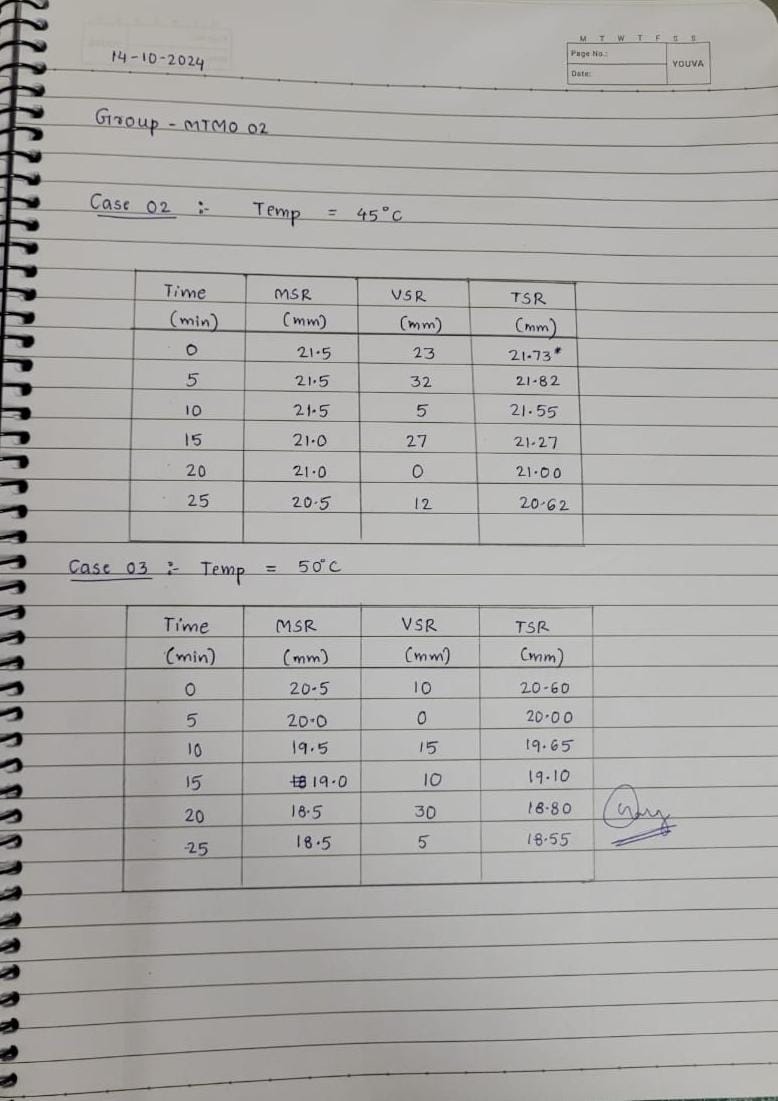 M T W T F S S
Page No.:
YOUVA
Date:
14-10-2024
Group - MTMO 02
Case 02 :- Temp = 45°C
Time MSR VSR TSR
(min) (mm) (mm) (mm)
0 21.5 23 21.73*
5 21.5 32 21.82
10 21.5 5 21.55
15 21.0 27 21.27
20 21.0 0 21.00
25 20.5 12 20.62
Case 03 :- Temp = 50°C
Time MSR VSR TSR
(min) (mm) (mm) (mm)
0 20.5 10 20.60
5 20.0 0 20.00
10 19.5 15 19.65
15 19.0 10 19.10
20 18.5 30 18.80
25 18.5 5 18.55